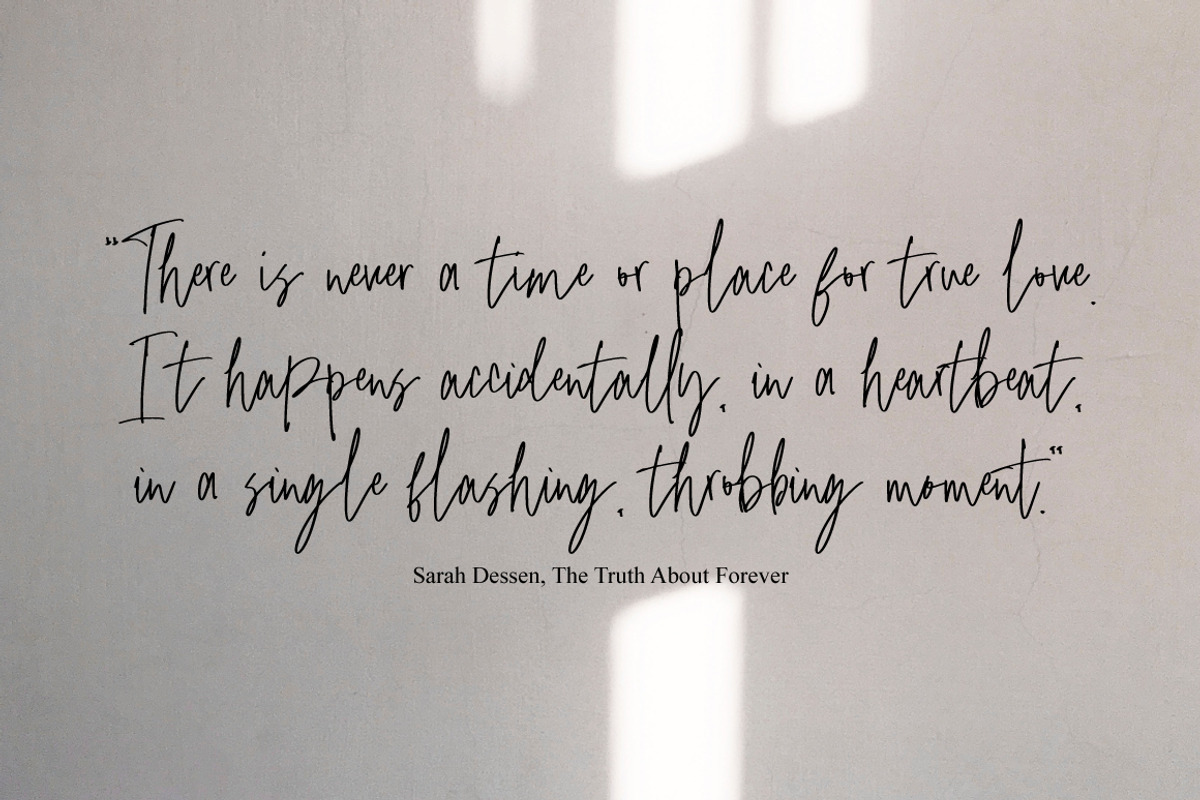 "There is never a time or place for true love.
It happens accidentally, in a heartbeat,
in a single flashing, throbbing moment."
Sarah Dessen, The Truth About Forever